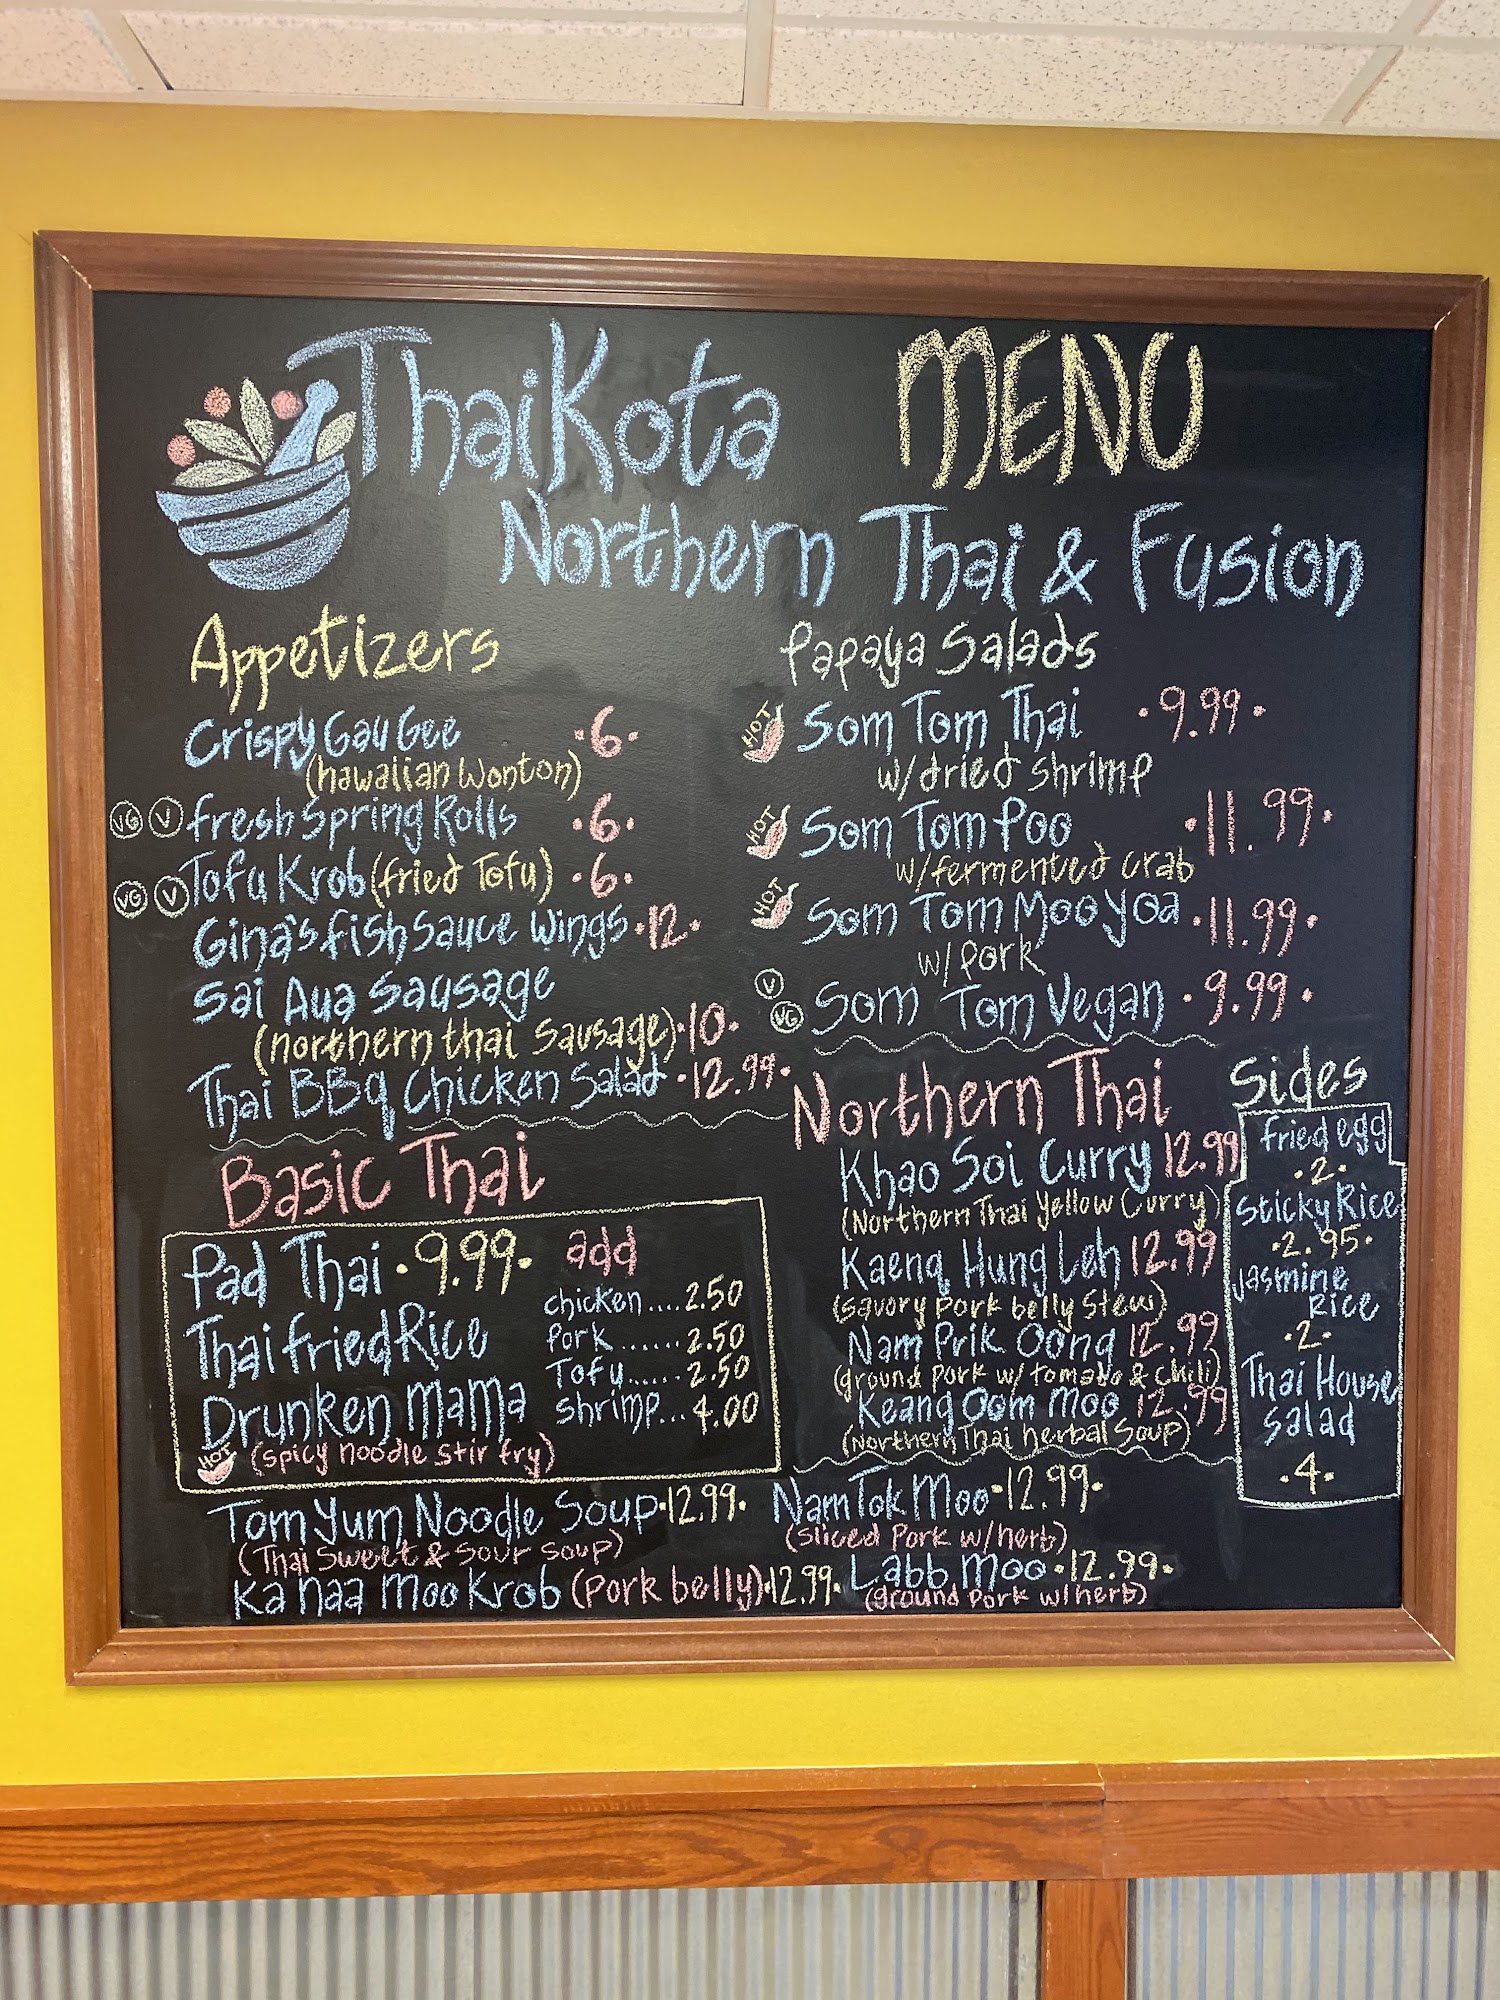 ThaiKota MENU
Northern Thai & Fusion
Appetizers
Crispy Gau Gee ·6·
(hawaiian Wonton)
VG V fresh Spring Rolls ·6·
VG V Tofu Krob (fried Tofu) ·6·
Gina's fish Sauce Wings ·12·
Sai Aua Sausage
(northern thai Sausage) ·10·
Thai BBq Chicken Salad ·12.99·
Basic Thai
Pad Thai ·9.99·
Thai fried Rice
Drunken Mama
HOT (spicy noodle stir fry)
add
chicken....2.50
Pork.......2.50
Tofu......2.50
Shrimp...4.00
Tom Yum Noodle Soup ·12.99·
(Thai Sweet & Sour soup)
Ka Naa Moo Krob (Pork belly) ·12.99·
Papaya Salads
HOT Som Tom Thai ·9.99·
w/dried shrimp
HOT Som Tom Poo ·11.99·
w/fermented crab
HOT Som Tom Moo Yoa ·11.99·
w/Pork
V VG Som Tom Vegan ·9.99·
Northern Thai
Khao Soi Curry 12.99
(Northern Thai Yellow Curry)
Kaeng Hung Leh 12.99
(Savory Pork belly Stew)
Nam Prik Oong 12.99
(ground Pork w/ tomato & Chili)
Keang Oom Moo 12.99
(Northern Thai herbal Soup)
Nam Tok Moo ·12.99·
(Sliced Pork w/herb)
Labb Moo ·12.99·
(ground Pork w/herb)
Sides
fried egg
·2·
Sticky Rice
·2.95·
Jasmine
Rice
·2·
Thai House
Salad
·4·